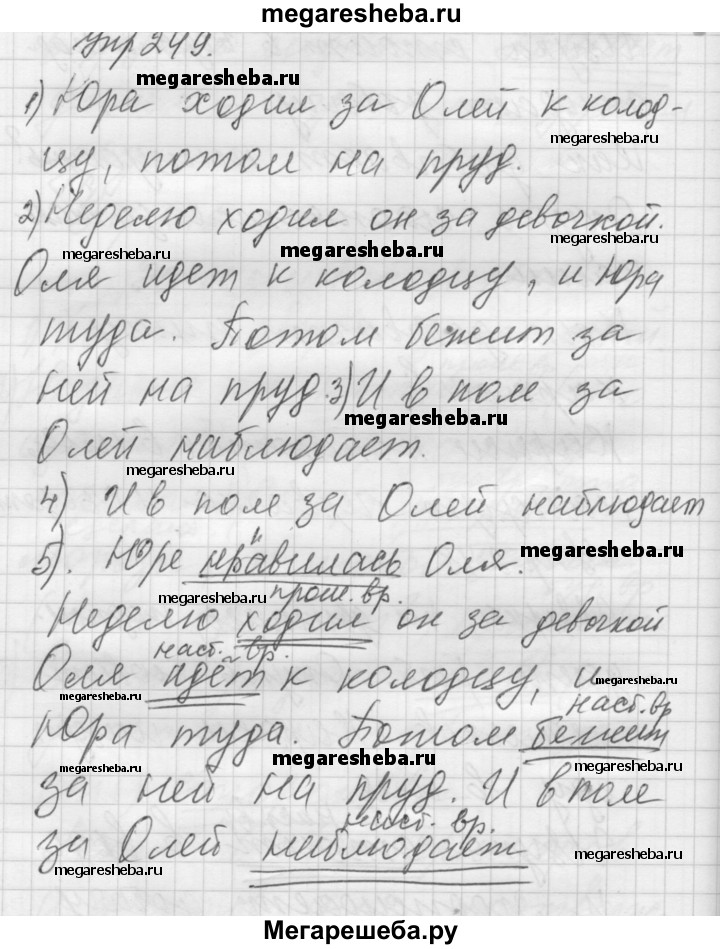 megaresheba.ru
Упр 249.
megaresheba.ru
1) Юра ходил за Олей к колод-
megaresheba.ru
цу, потом на пруд.
2) Неделю ходил он за девочкой.
megaresheba.ru
megaresheba.ru
megaresheba.ru
Оля идет к колодцу, и Юра
туда. Потом бежит за
ней на пруд. 3) И в поле за
megaresheba.ru
Олей наблюдает.
megaresheba.ru
4) И в поле за Олей наблюдает
5). Юре нравилась Оля.
megaresheba.ru
megaresheba.ru
прош. вр.
Неделю ходил он за девочкой
наст. вр.
Оля идёт к колодцу, и
megaresheba.ru
megaresheba.ru
наст. вр
Юра туда. Потом бежит
megaresheba.ru
megaresheba.ru
megaresheba.ru
за ней на пруд. И в поле
наст. вр.
за Олей наблюдает
megaresheba.ru
megaresheba.ru
Мегарешеба.ру